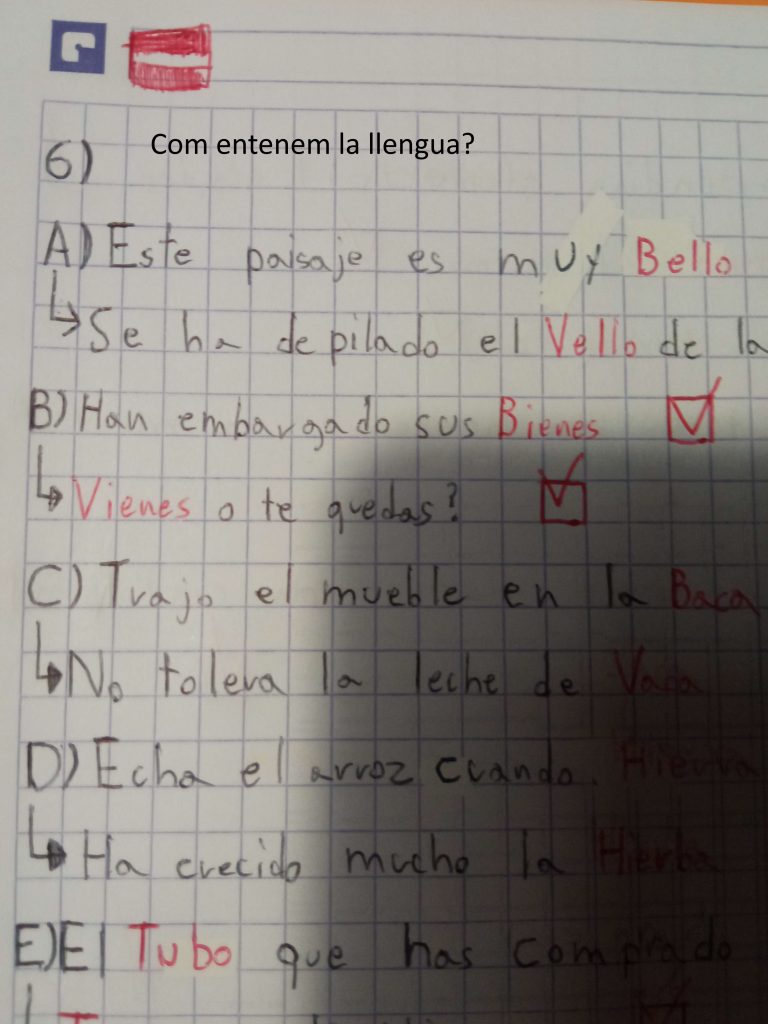 Com entenem la llengua?
6)
A) Este paisaje es muy Bello
Se ha depilado el Vello de la
B) Han embargado sus Bienes
Vienes o te quedas?
C) Trajo el mueble en la Baca
No tolera la leche de Vaca
D) Echa el arroz cuando Hierva
Ha crecido mucho la Hierba
E) El Tubo que has comprado